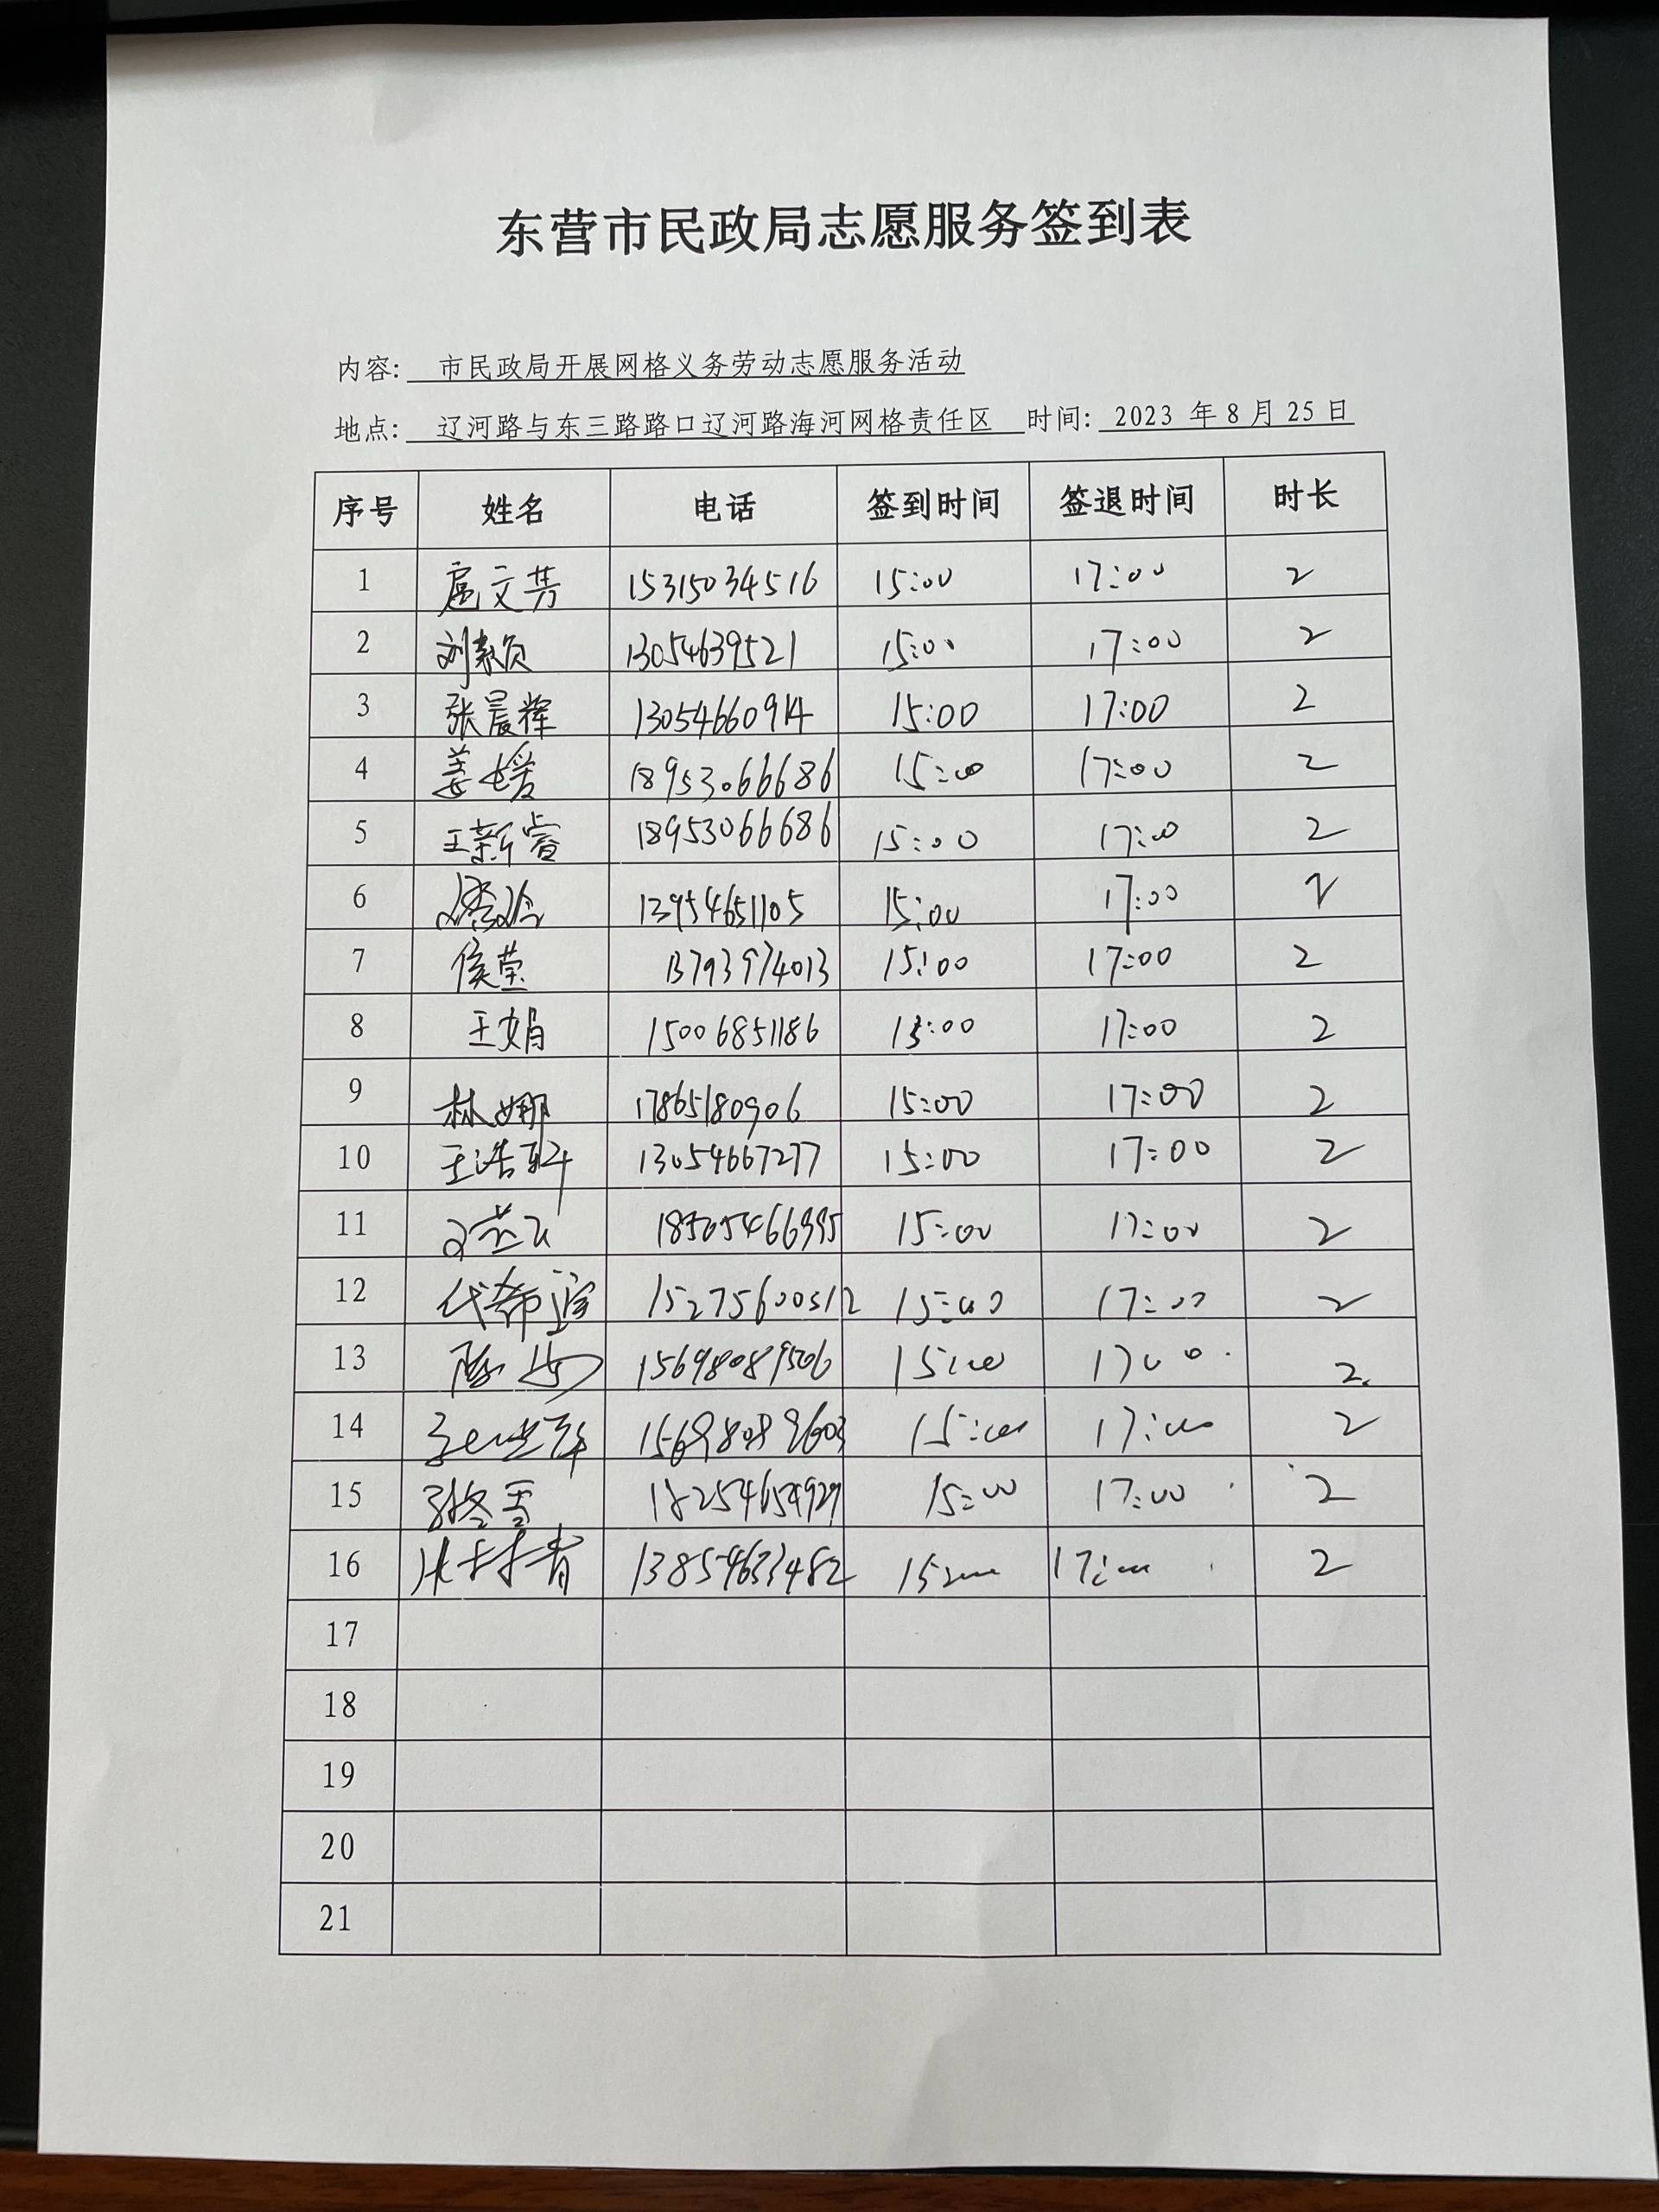 东营市民政局志愿服务签到表
内容: 市民政局开展网格义务劳动志愿服务活动
地点: 辽河路与东三路路口辽河路海河网格责任区 时间: 2023 年 8 月 25 日
序号 姓名 电话 签到时间 签退时间 时长
1 扈文芳 15315034516 15:00 17:00 2
2 刘颖 13054639521 15:00 17:00 2
3 张晨辉 13054660914 15:00 17:00 2
4 姜媛 18953066686 15:00 17:00 2
5 王新睿 18953066686 15:00 17:00 2
6 13954651105 15:00 17:00 2
7 侯莹 13793974013 15:00 17:00 2
8 王娟 15006851186 15:00 17:00 2
9 林娜 17865180906 15:00 17:00 2
10 王浩 13054667277 15:00 17:00 2
11 15:00 17:00 2
12 代希 15275600512 15:00 17:00 2
13 陈 15698089506 15:00 17:00 2
14 15698089603 15:00 17:00 2
15 冬雪 18254654929 15:00 17:00 2
16 13854633482 15:00 17:00 2
17
18
19
20
21